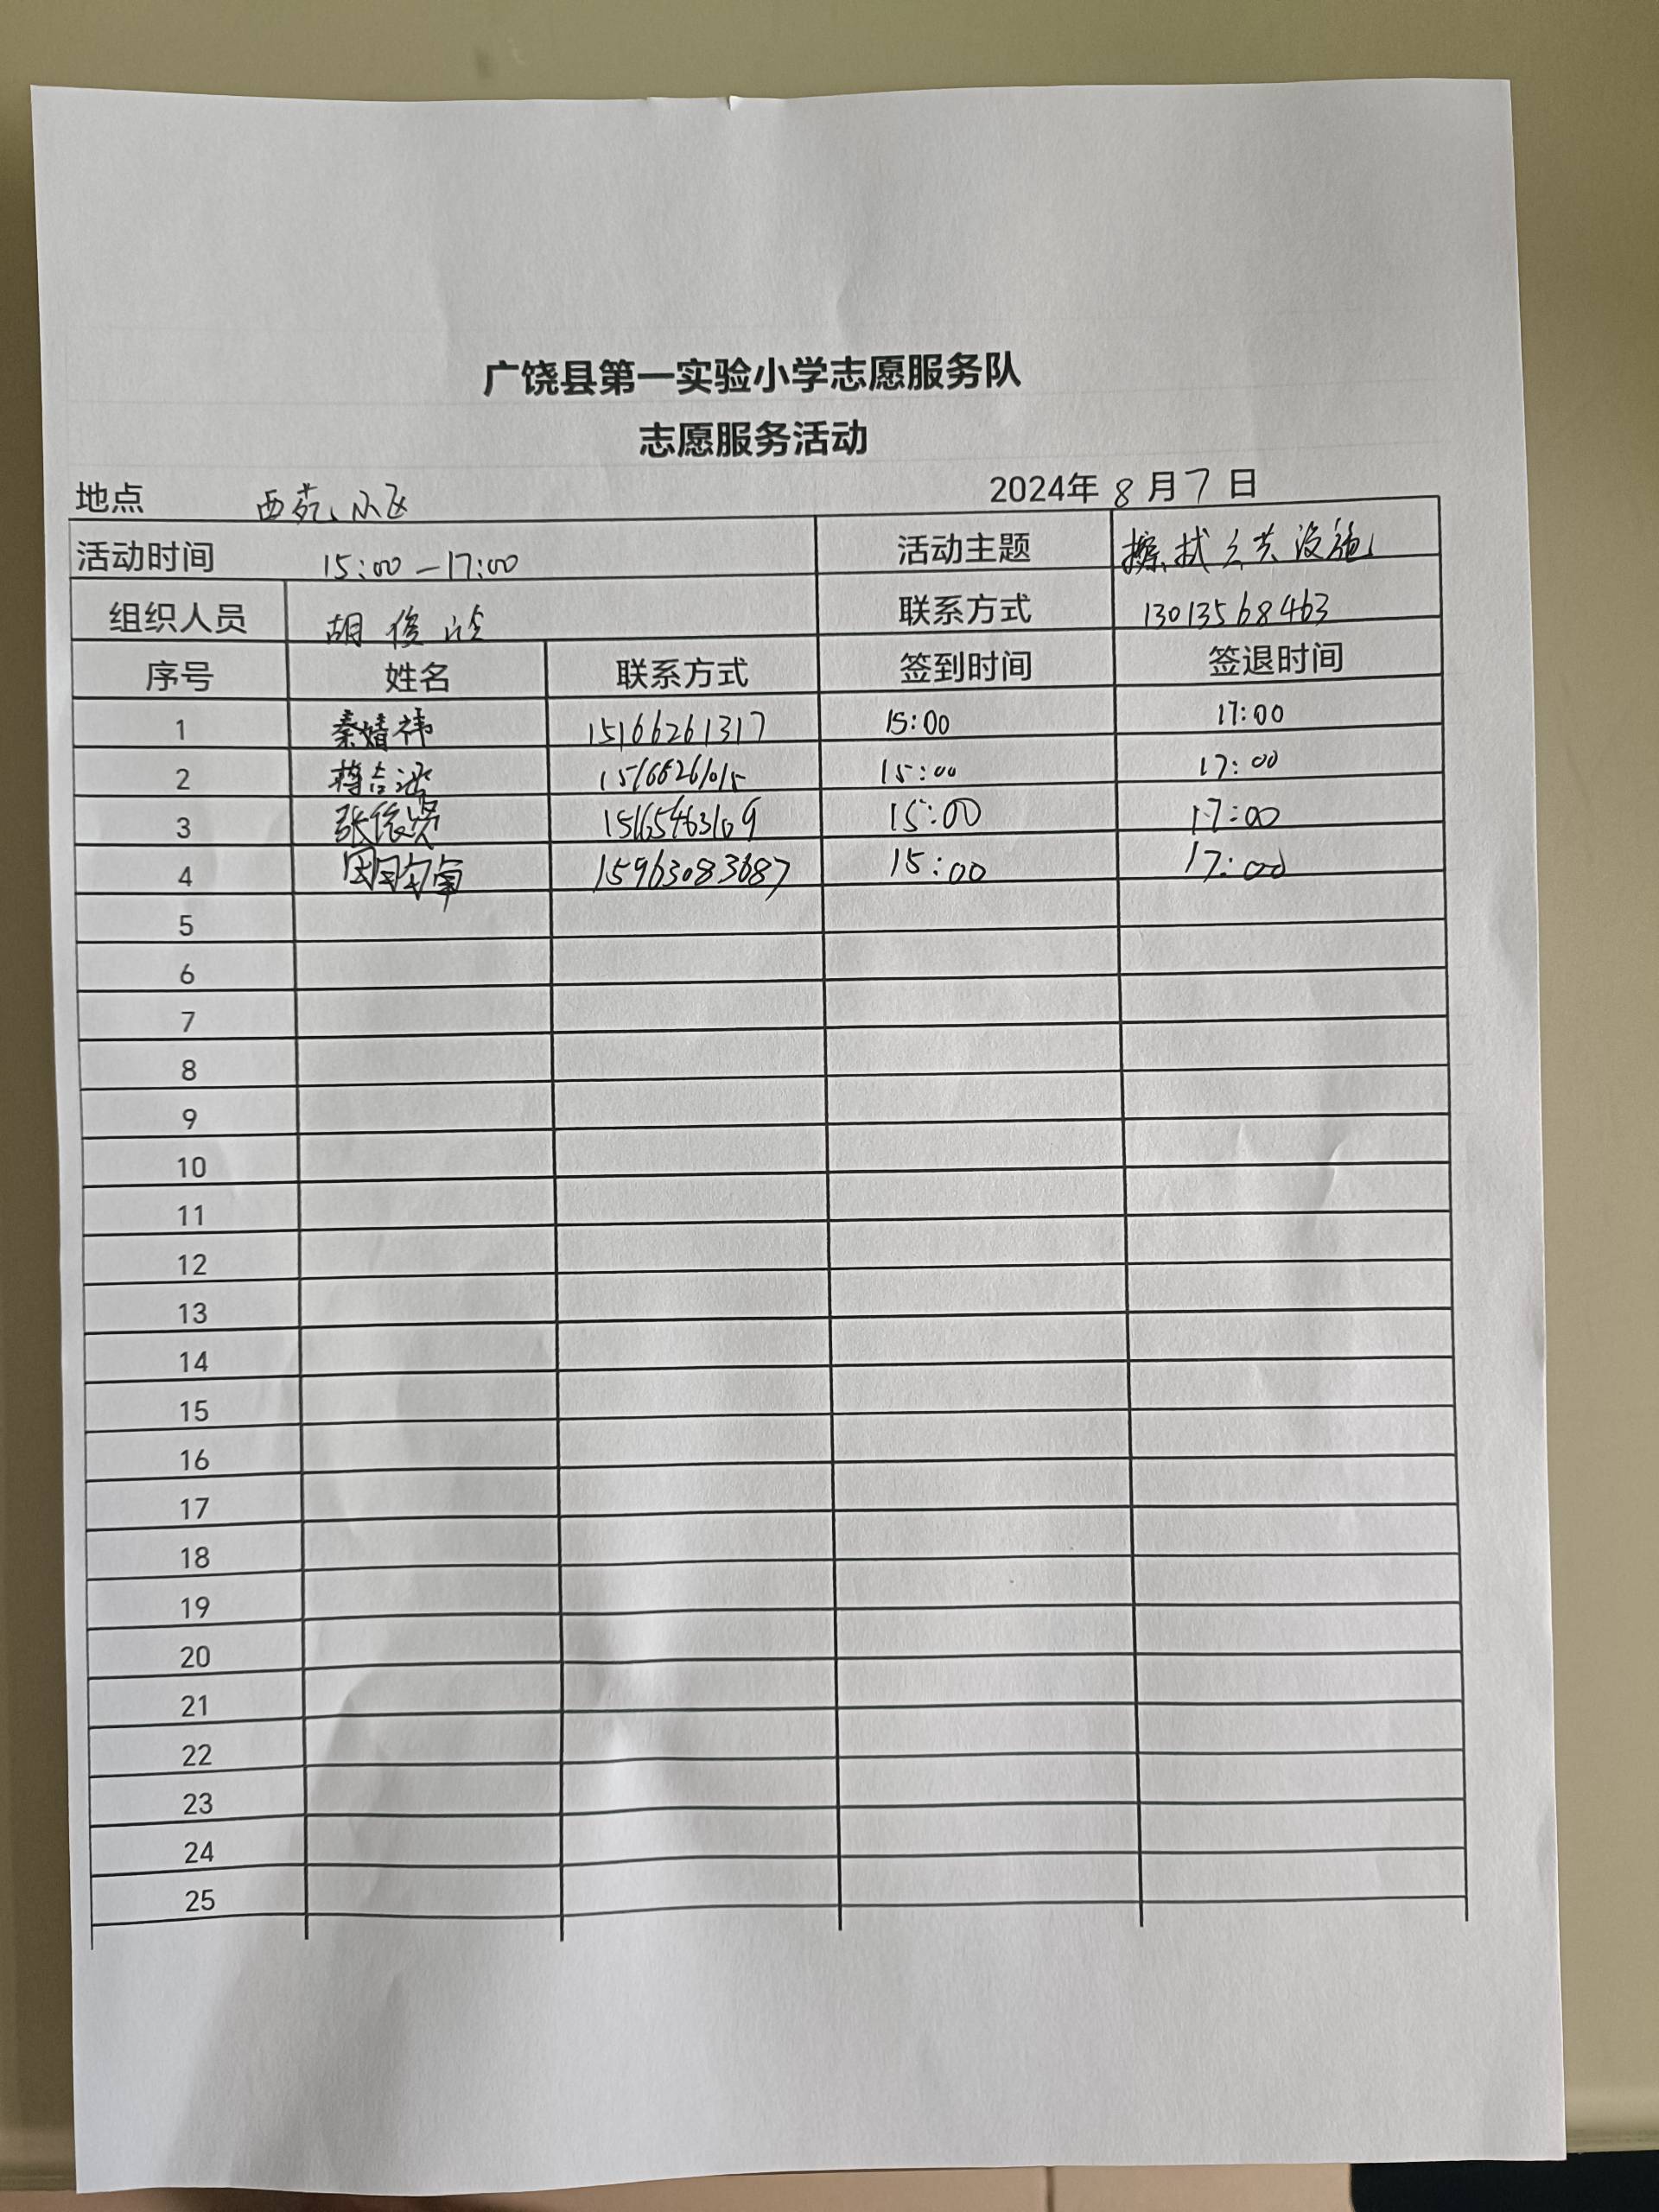 广饶县第一实验小学志愿服务队
志愿服务活动
地点 西苑小区 2024年8月7日
活动时间 15:00-17:00 活动主题 擦拭公共设施
组织人员 胡俊 联系方式 13013568463
序号 姓名 联系方式 签到时间 签退时间
1 秦婧祎 15166261317 15:00 17:00
2 15:00 17:00
3 15:00 17:00
4 15963083687 15:00 17:00
5
6
7
8
9
10
11
12
13
14
15
16
17
18
19
20
21
22
23
24
25